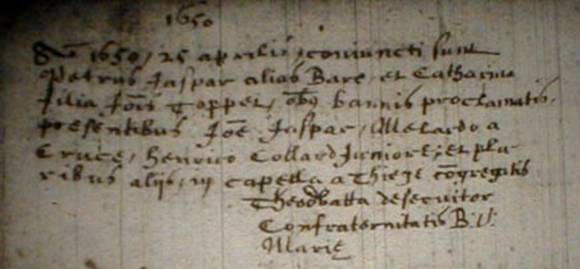 1650
Ao 1650, 25 aprilis, coniuncti sunt
Petrus Jaspar alias Bare et Catharina
filia Jois Toppet, obs bannis proclamatis,
presentibus Joe Jaspar, Melardo a
Cruce, henrico Collard Juniore, et plu
ribus alijs, in capella a Thiege cōgregatis
Theod desecuitor
Confraternitatis B. V.
Marię